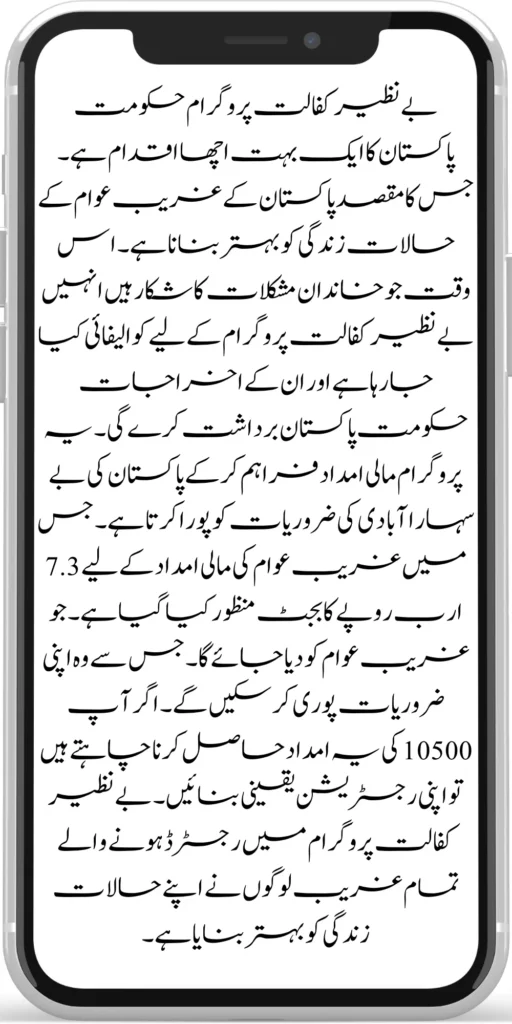 بے نظیر کفالت پروگرام حکومت
پاکستان کا ایک بہت اچھا اقدام ہے۔
جس کا مقصد پاکستان کے غریب عوام کے
حالات زندگی کو بہتر بنانا ہے۔ اس
وقت جو خاندان مشکلات کا شکار ہیں انہیں
بے نظیر کفالت پروگرام کے لیے کوالیفائی کیا
جا رہا ہے اور ان کے اخراجات
حکومت پاکستان برداشت کرے گی۔ یہ
پروگرام مالی امداد فراہم کر کے پاکستان کی بے
سہارا آبادی کی ضروریات کو پورا کرتا ہے۔ جس
میں غریب عوام کی مالی امداد کے لیے 7.3
ارب روپے کا بجٹ منظور کیا گیا ہے۔ جو
غریب عوام کو دیا جائے گا۔ جس سے وہ اپنی
ضروریات پوری کر سکیں گے۔ اگر آپ
10500 کی یہ امداد حاصل کرنا چاہتے ہیں
تو اپنی رجسٹریشن یقینی بنائیں۔ بے نظیر
کفالت پروگرام میں رجسٹرڈ ہونے والے
تمام غریب لوگوں نے اپنے حالات
زندگی کو بہتر بنایا ہے۔